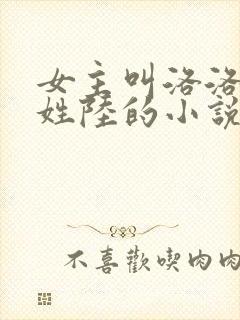 女主叫洛洛
姓陸的小說
不喜歡喫肉肉